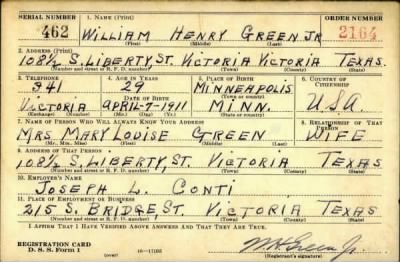 SERIAL NUMBER 1. NAME (Print) ORDER NUMBER
462 WILLIAM HENRY GREEN JR 2164
(First) (Middle) (Last)
2. ADDRESS (Print)
108½ S. LIBERTY, ST. VICTORIA VICTORIA TEXAS.
(Number and street or R. F. D. number) (Town) (County) (State)
3. TELEPHONE 4. AGE IN YEARS 5. PLACE OF BIRTH 6. COUNTRY OF CITIZENSHIP
341 29 MINNEAPOLIS
DATE OF BIRTH (Town or county)
VICTORIA APRIL-7-1911 MINN. USA.
(Exchange) (Number) (Mo.) (Day) (Yr.) (State or country)
7. NAME OF PERSON WHO WILL ALWAYS KNOW YOUR ADDRESS 8. RELATIONSHIP OF THAT PERSON
MRS. MARY LOUISE GREEN WIFE
(Mr., Mrs., Miss) (First) (Middle) (Last)
9. ADDRESS OF THAT PERSON
108½ S. LIBERTY, ST. VICTORIA TEXAS
(Number and street or R. F. D. number) (Town) (County) (State)
10. EMPLOYER'S NAME
JOSEPH L. CONTI
11. PLACE OF EMPLOYMENT OR BUSINESS
215 S. BRIDGE, ST. VICTORIA TEXAS
(Number and street or R. F. D. number) (Town) (County) (State)
I AFFIRM THAT I HAVE VERIFIED ABOVE ANSWERS AND THAT THEY ARE TRUE.
REGISTRATION CARD
D. S. S. Form 1 (over) W H Green Jr.
(Registrant's signature)